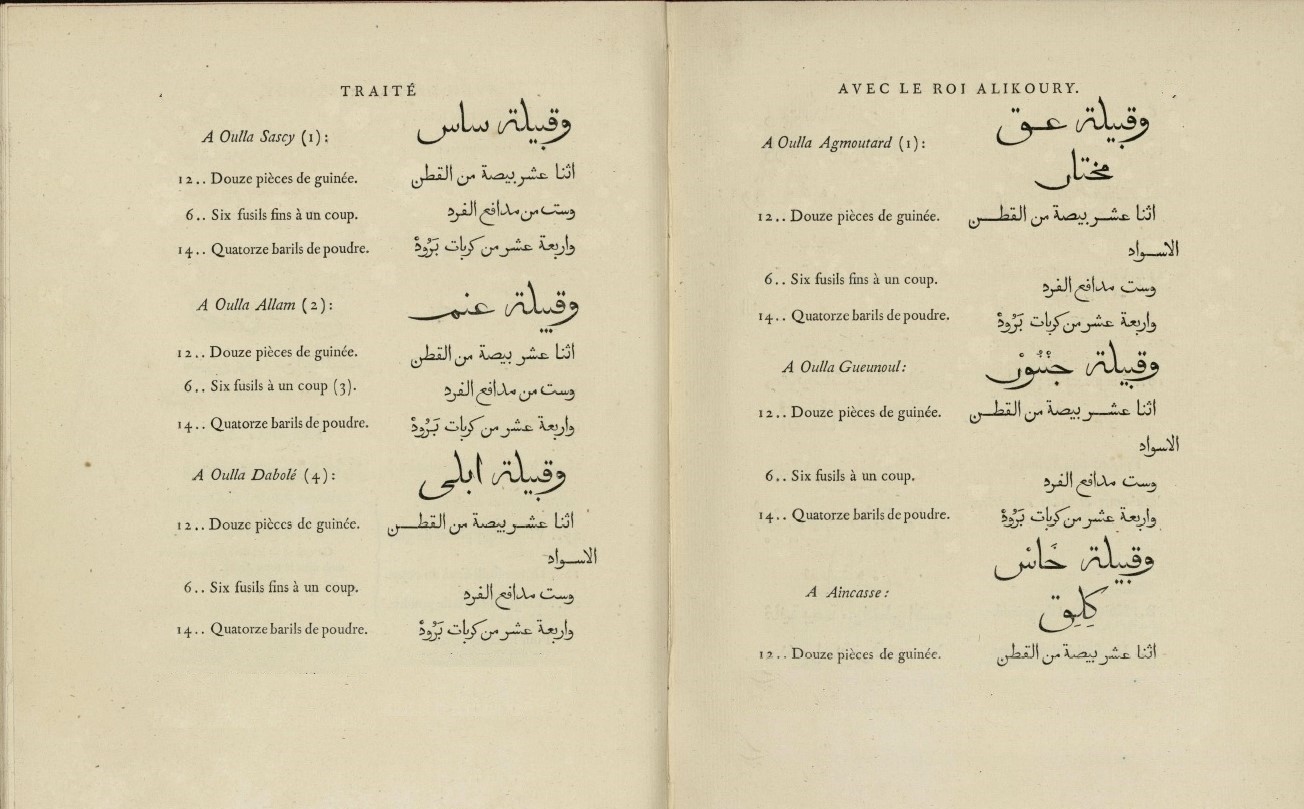 TRAITÉ
A Oulla Sascy (1):
وقبيلة ساس
12.. Douze pièces de guinée.
اثنا عشر بيصة من القطن
6.. Six fusils fins à un coup.
وست من مدافع الفرد
14.. Quatorze barils de poudre.
واربعة عشر من كربات بَرُودْ
A Oulla Allam (2):
وقبيلة عنم
12.. Douze pièces de guinée.
اثنا عشر بيصة من القطن
6.. Six fusils à un coup (3).
وست من مدافع الفرد
14.. Quatorze barils de poudre.
واربعة عشر من كربات بَرُودْ
A Oulla Dabolé (4):
وقبيلة ابلى
12.. Douze pièces de guinée.
اثنا عشر بيصة من القطن
الاسواد
6.. Six fusils fins à un coup.
وست مدافع الفرد
14.. Quatorze barils de poudre.
واربعة عشر من كربات بَرُودْ
AVEC LE ROI ALIKOURY.
A Oulla Agmoutard (1):
وقبيلة عق
مختار
12.. Douze pièces de guinée.
اثنا عشر بيصة من القطن
الاسواد
6.. Six fusils fins à un coup.
وست مدافع الفرد
14.. Quatorze barils de poudre.
واربعة عشر من كربات بَرُودْ
A Oulla Gueunoul:
وقبيلة
12.. Douze pièces de guinée.
اثنا عشر بيصة من القطن
الاسواد
6.. Six fusils à un coup.
وست مدافع الفرد
14.. Quatorze barils de poudre.
واربعة عشر من كربات بَرُودْ
A Aincasse:
وقبيلة
12.. Douze pièces de guinée.
اثنا عشر بيصة من القطن